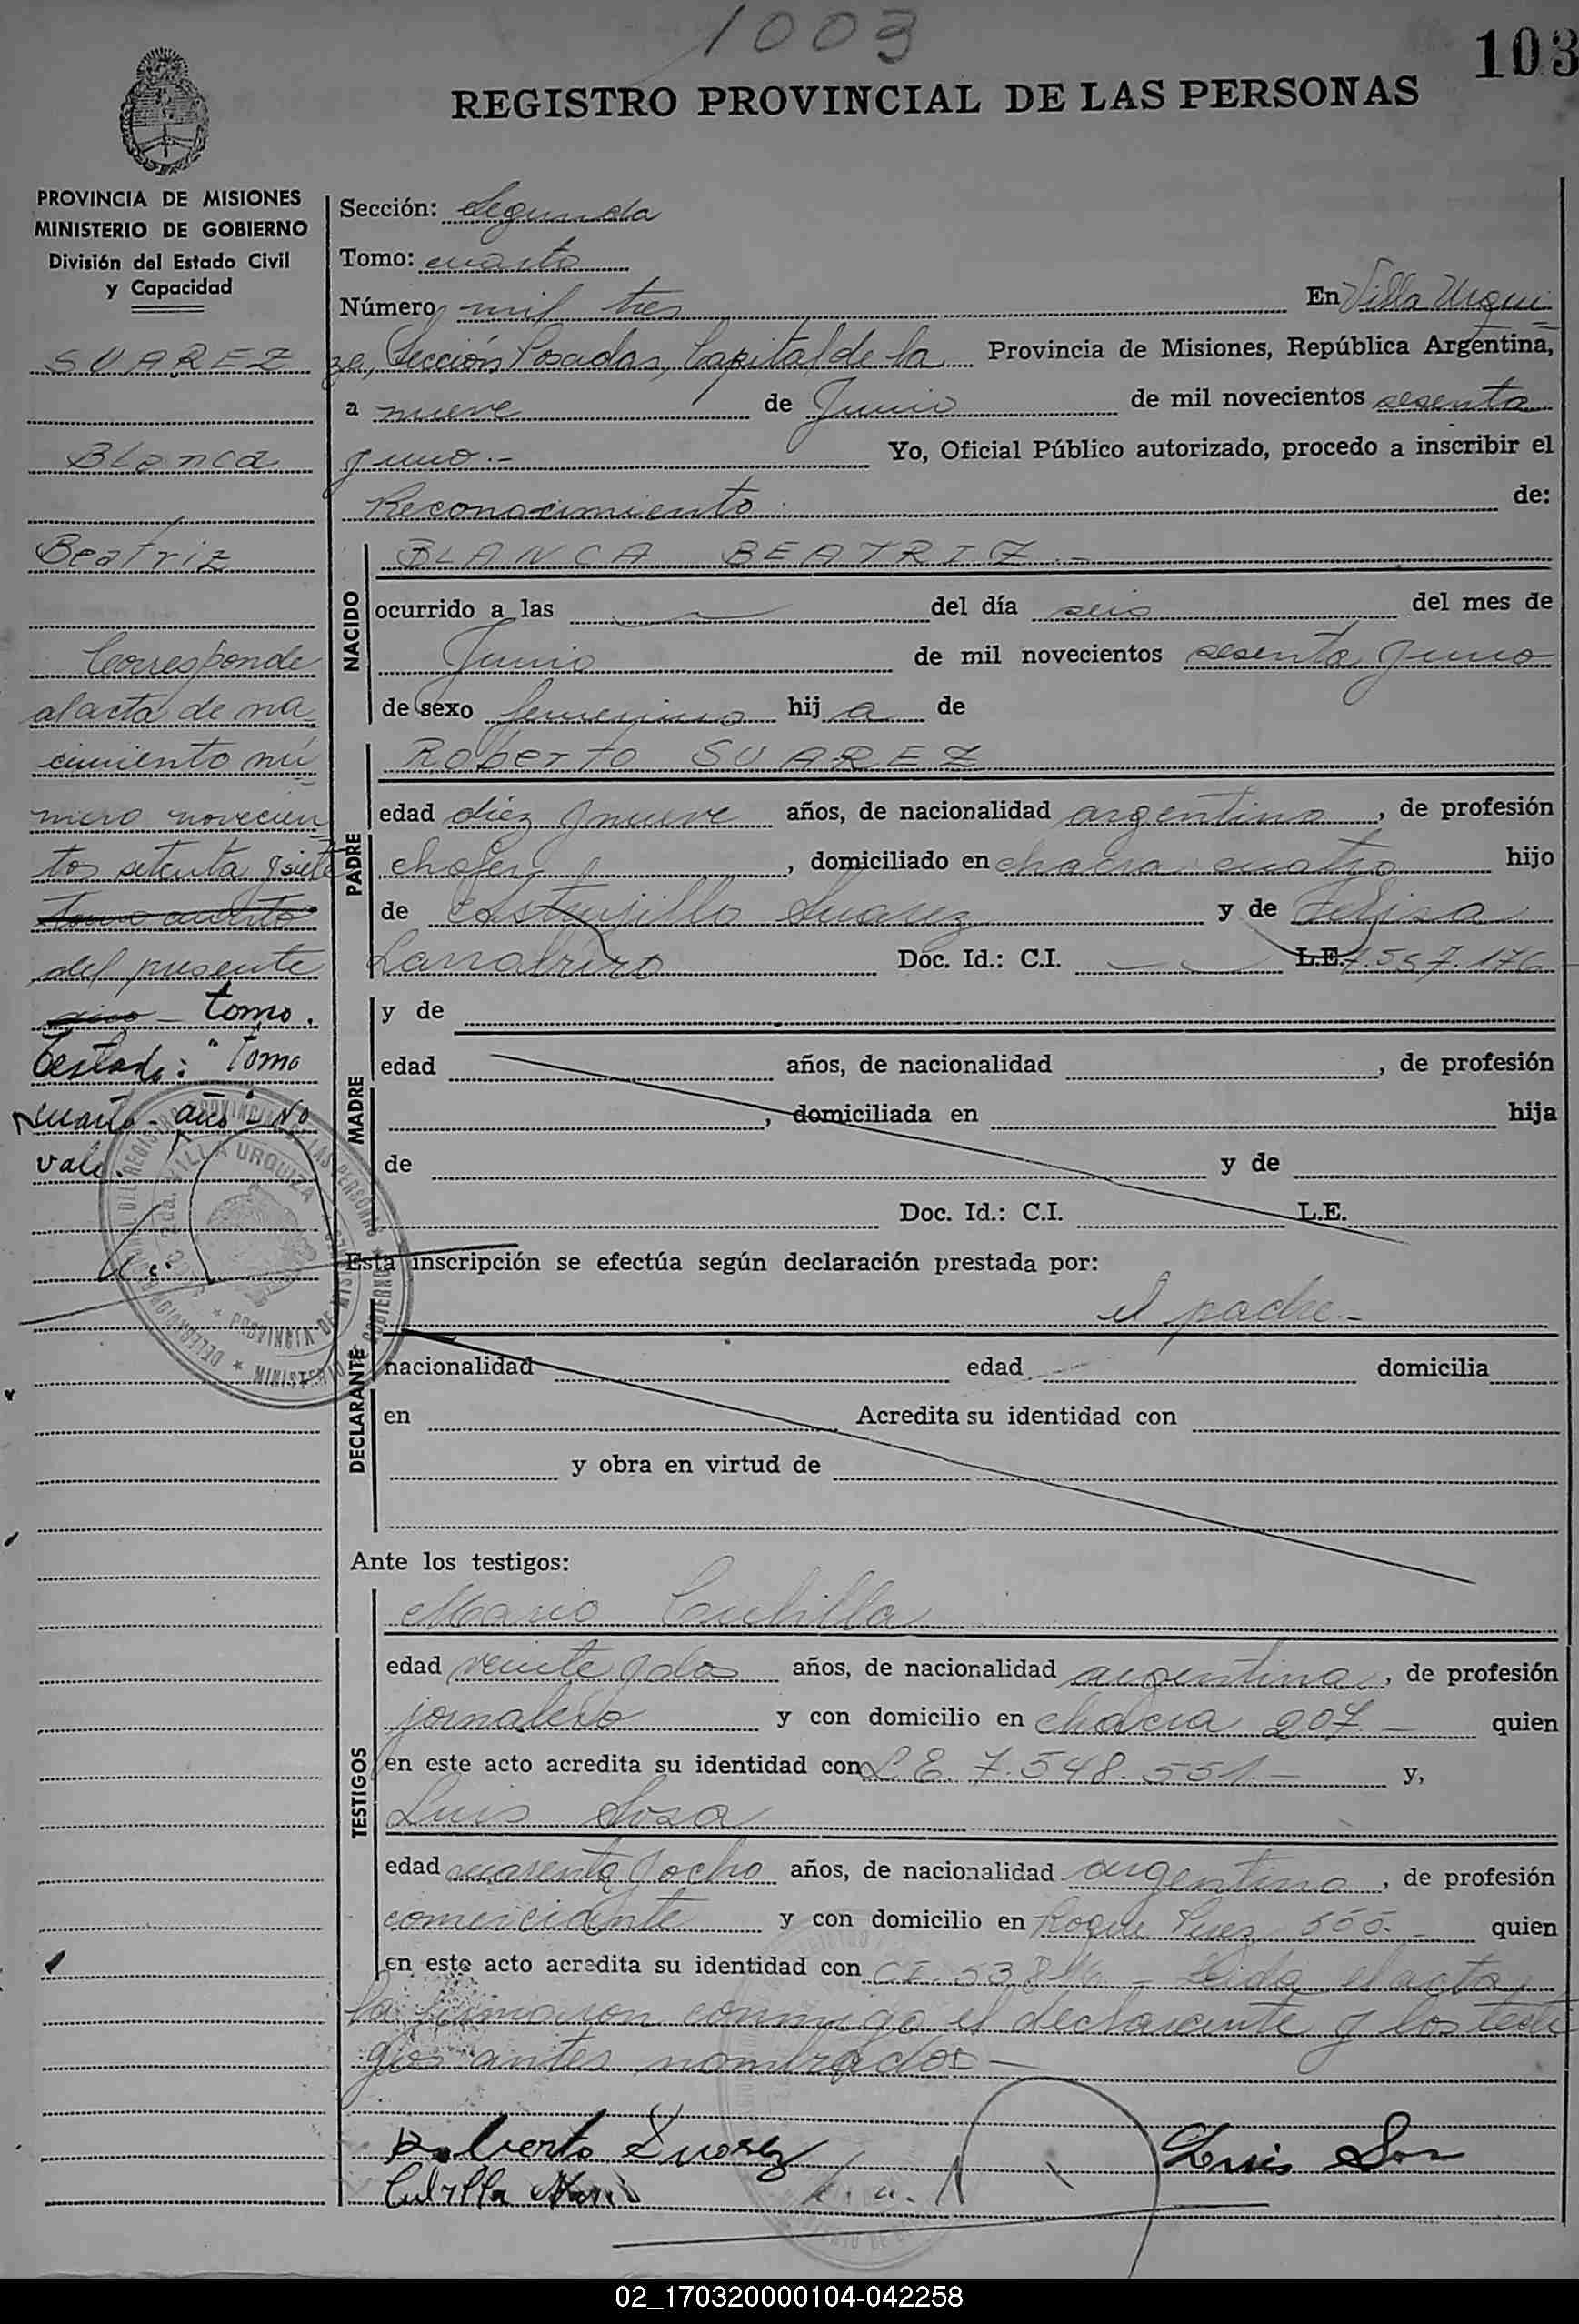 1003
103
REGISTRO PROVINCIAL DE LAS PERSONAS
PROVINCIA DE MISIONES
MINISTERIO DE GOBIERNO
División del Estado Civil
y Capacidad
SUAREZ
Blanca
Beatriz
Corresponde
al acta de na
cimiento nú
mero novecien
tos setenta y siete
del presente
tomo.
Testado: "Tomo
cuarto - año" No
vale.
Sección: Segunda
Tomo: cuarto
Número mil tres En Villa Urqui
za, Sección Posadas, Capital de la Provincia de Misiones, República Argentina,
a nueve de Junio de mil novecientos sesenta
y uno.- Yo, Oficial Público autorizado, procedo a inscribir el
Reconocimiento de:
NACIDO
BLANCA BEATRIZ.-
ocurrido a las del día seis del mes de
Junio de mil novecientos sesenta y uno
de sexo femenino hij a de
PADRE
Roberto SUAREZ
edad diez y nueve años, de nacionalidad argentino, de profesión
chofer, domiciliado en chacra cuatro hijo
de Suarez y de Felisa
Doc. Id.: C.I. L.E. 7.557.176
MADRE
y de
edad años, de nacionalidad , de profesión
, domiciliada en hija
de y de
Doc. Id.: C.I. L.E.
Esta inscripción se efectúa según declaración prestada por:
el padre.-
DECLARANTE
nacionalidad edad domicilia
en Acredita su identidad con
y obra en virtud de
Ante los testigos:
TESTIGOS
Mario Cubilla
edad veinte y dos años, de nacionalidad argentina, de profesión
jornalero y con domicilio en chacra 207 - quien
en este acto acredita su identidad con L.E. 7.548.551.- y,
Luis Sosa
edad cuarenta y ocho años, de nacionalidad argentino, de profesión
comerciante y con domicilio en Roque Perez 555- quien
en este acto acredita su identidad con C.I. - Leida el acta,
la firmaron conmigo el declarante y los testi
gos antes nombrados -
Roberto Suarez
Luis Sosa
Cubilla Mario
VILLA URQUIZA
02_170320000104-042258